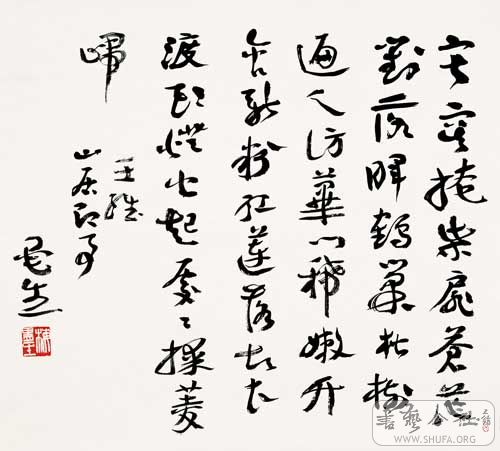 寂寞掩柴扉蒼茫
對落暉鶴巢松樹
遍人訪蓽門稀嫩竹
含新粉紅蓮落故衣
渡頭燈火起處〻採菱
歸
王維
山居即事
書藝公社
WWW.SHUFA.ORG